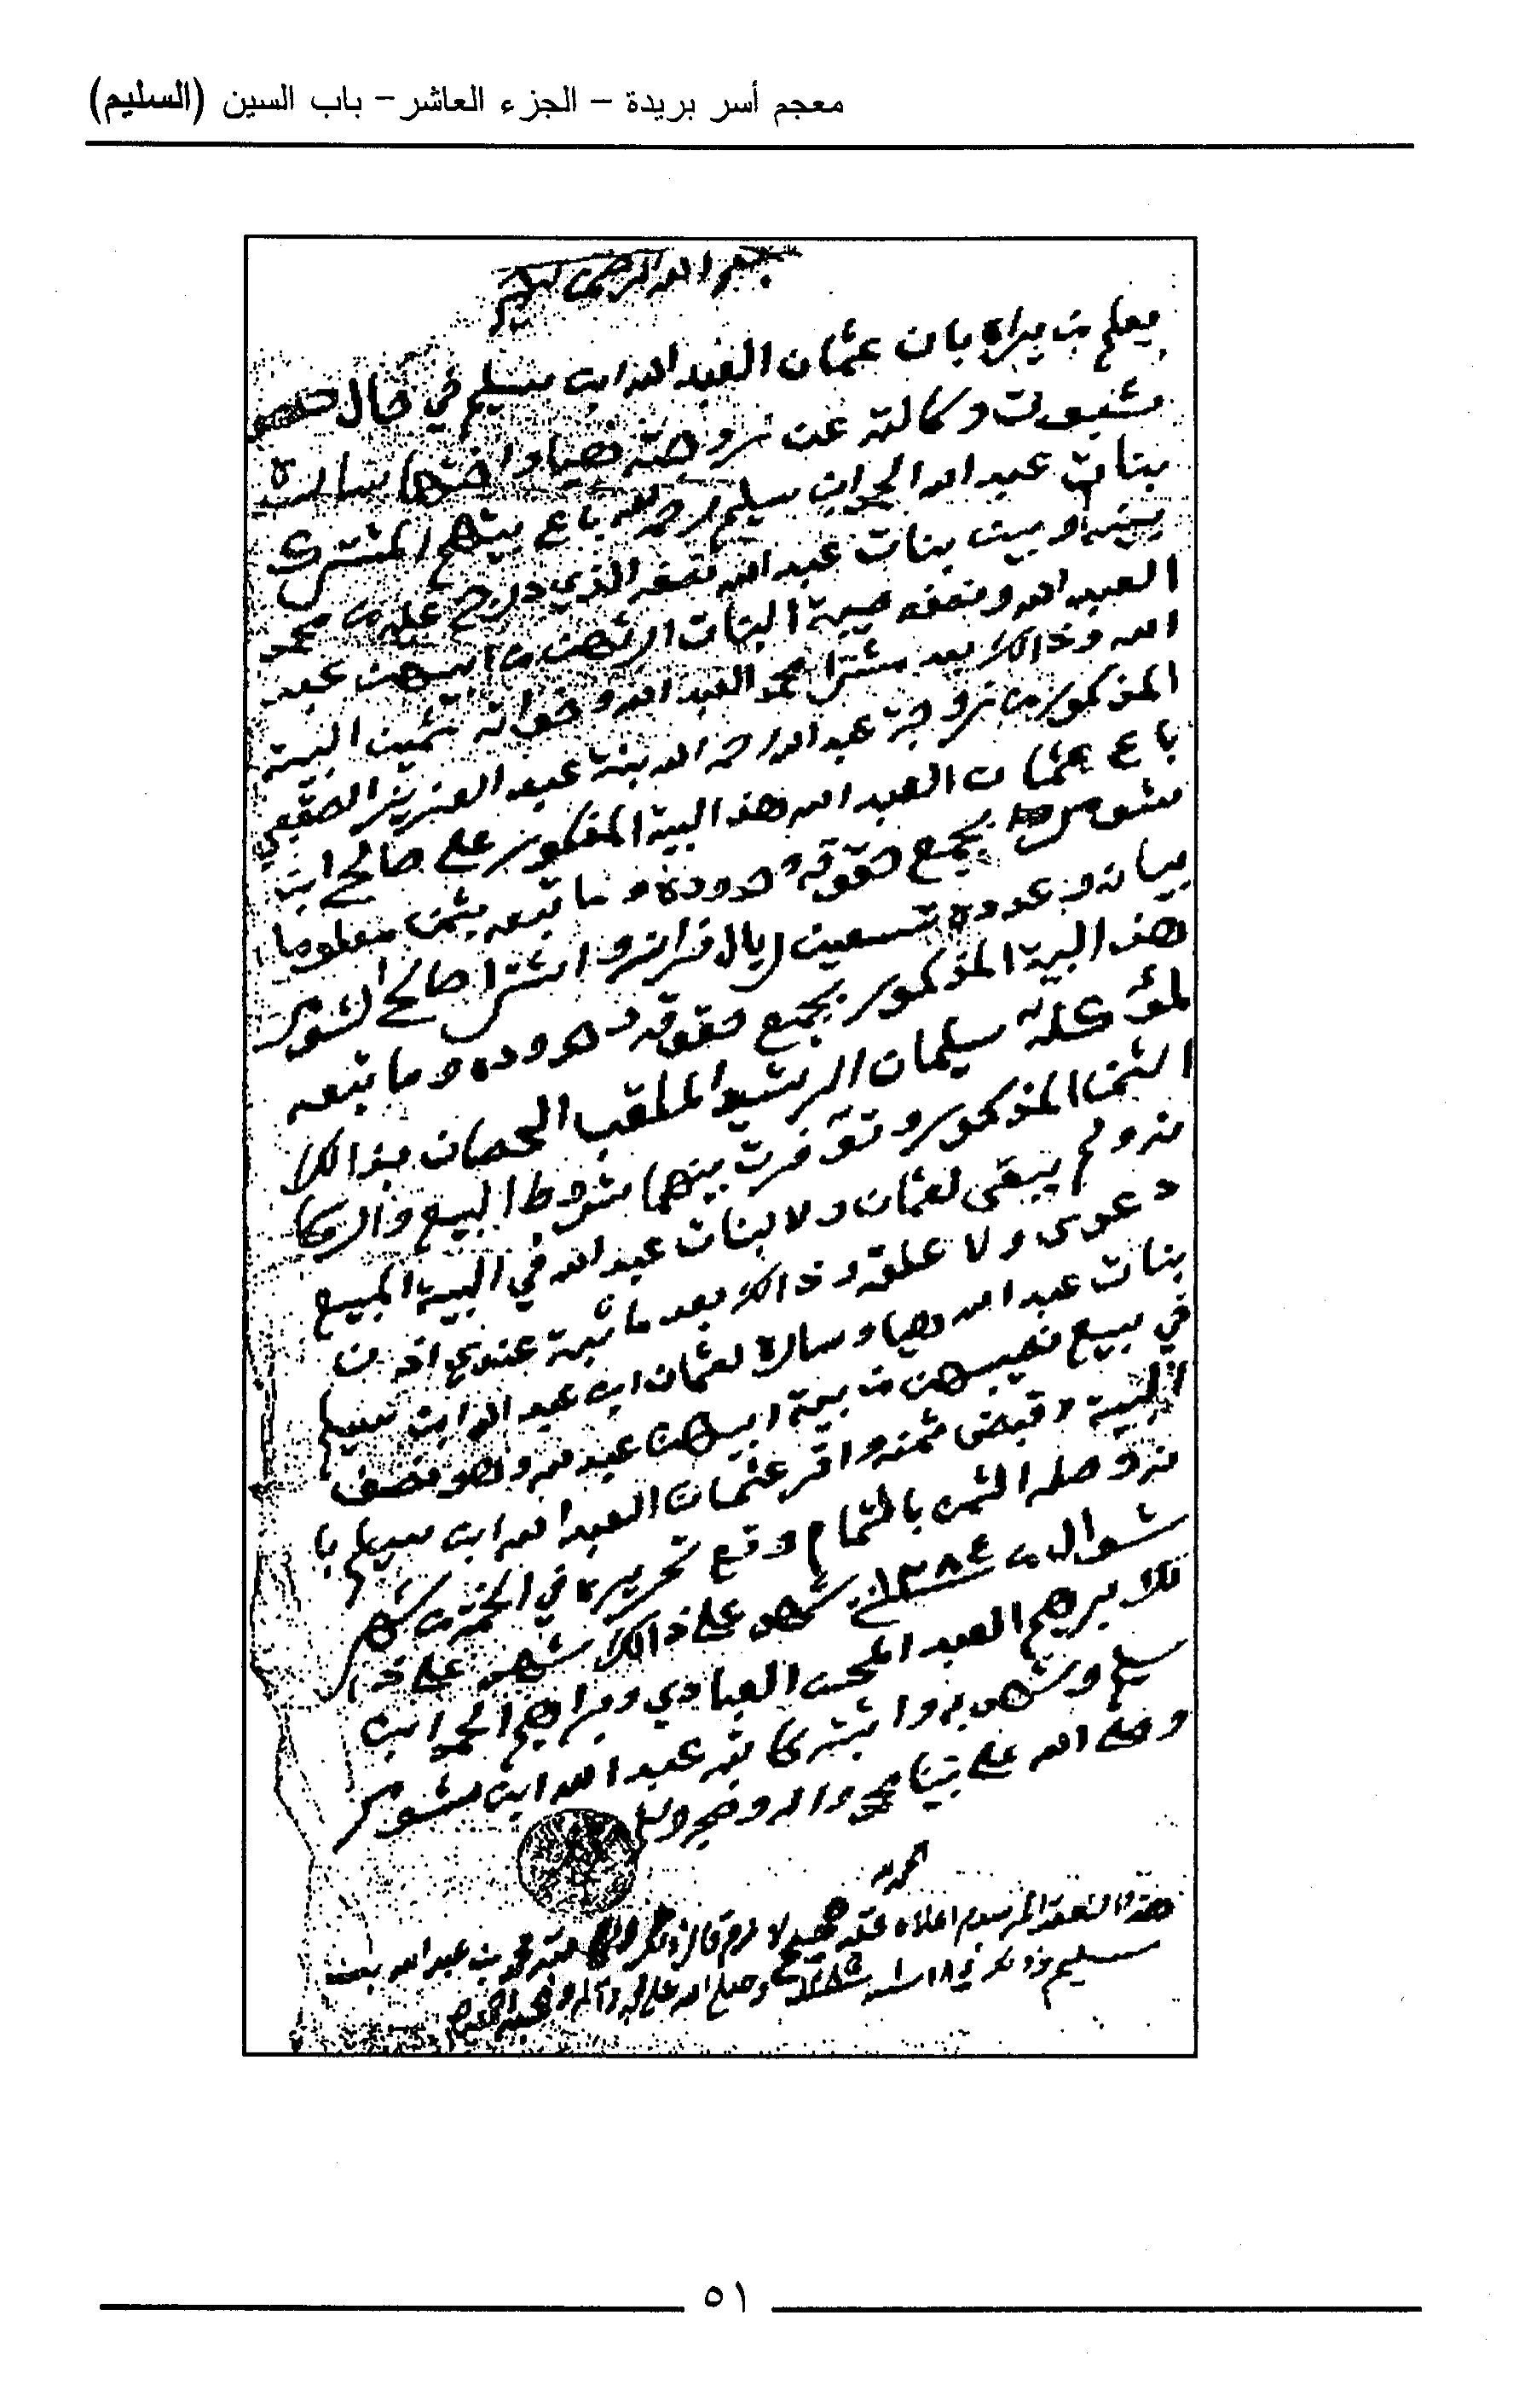 معجم أسر بريدة – الجزء العاشر – باب السين (السليم)
بسم الله الرحمن الرحيم
يعلم من يراه بان عثمان العبد الله ابن سليم في حال
بثبوت وكالته عن زوجته هيا واختها سارة
بنات عبد الله الحمد ابن سليم رحمه الله باع بيتهم المشترك
بينه وبين بنات عبد الله نصفه الذي درج عليه من محمد
العبد الله ونصفه صيبة البنات ارثهن من ابيهن عبد
الله وذالك بعد مشترا محمد العبد الله وخواته ثمين البيت
المذكور من زوجة عبد الله رحمه الله بنت عبد العزيز الصقعبي
باع عثمان العبد الله هذ البيت المذكور على صالح ابن
مشوح بجمع حقوقه وحدوده وما تبعه بثمن معلوما
بيانه وعدده تسعين ريال فرانزه واشترا صالح المشوح
هذ البيت المذكور بجمع حقوقه وحدوده وما تبعه
لمؤكله سليمان الرشيد الملقب الحصان بذالك
الثمن المذكور وتوفرت بينهما شروط البيع والزكا
منه ولم يبقى لعثمان ولا لبنات عبد الله في البيت المبيع
دعوى ولا علقه وذالك بعد ما ثبت عندي اذن
بنات عبد الله هيا وسارة لعثمان ابن عبد الله ابن سليم
في بيع نصيبهن من بيت ابيهن عبد الله وهو نصف
البيت وقبض ثمنه واقر عثمان العبد الله ابن سليم با
نه وصله الثمن بالتمام وقع تحريره في شهر
شوال من ١٢٨٤ شهد على ذالك شهد على ذا
لك ابرهيم العبد المحسن العبادي وبراهيم الحمد ابن
سليم وشهد به واثبته كاتبه عبد الله ابن مشوح
وصلى الله على نبينا محمد واله وصحبه وسلم
الحمد لله
هذا العقد المرسوم اعلاه عقد صحيح لازم قاله كاتبه محمد بن عبد الله بن
سليم وصلى الله على محمد وآله وصحبه
٥١